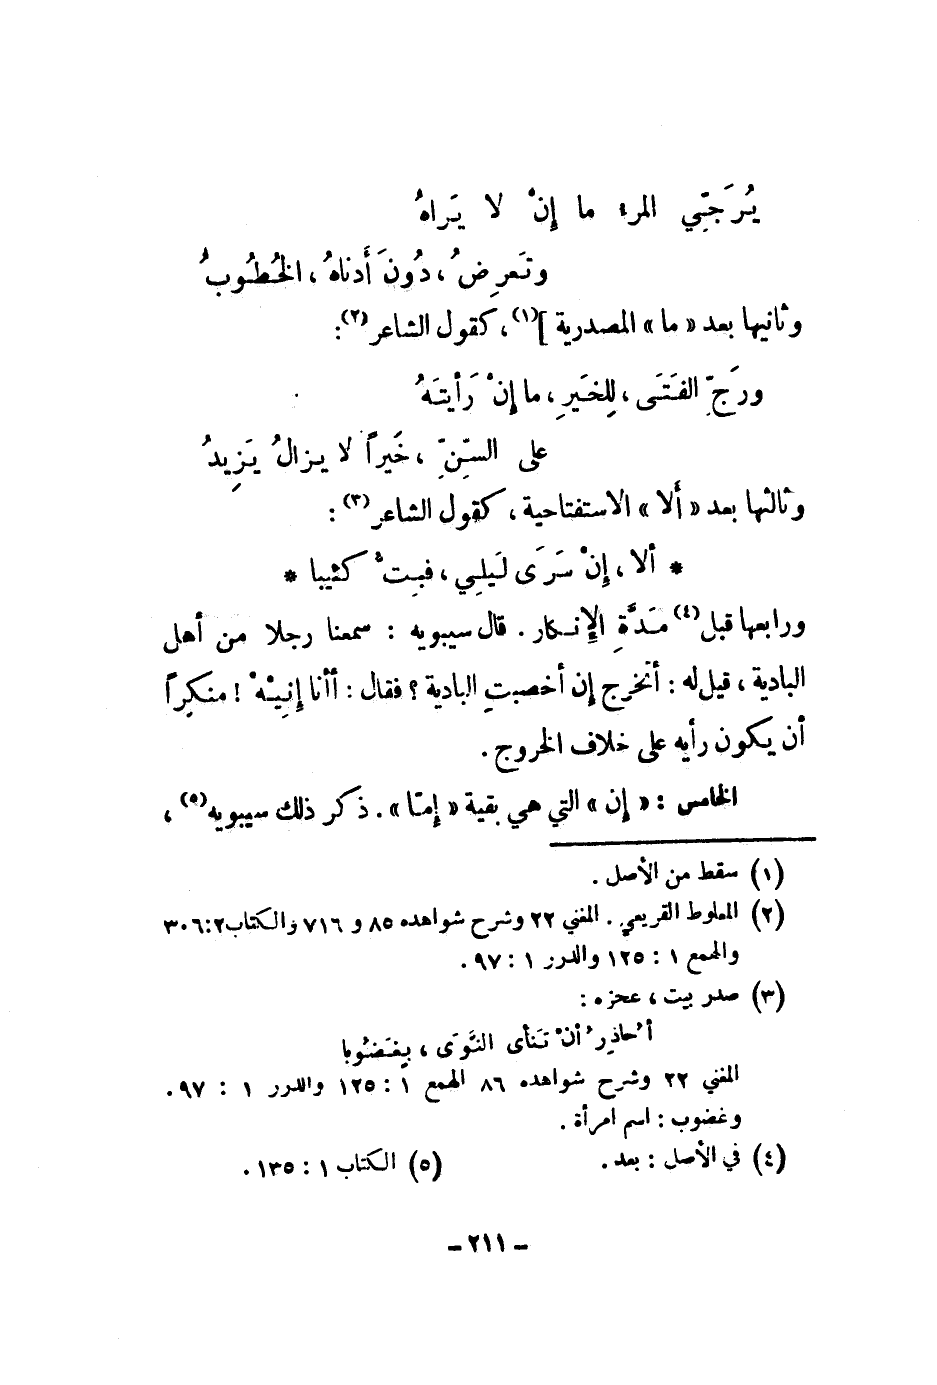 يُرَجِّي المرء ما إِنْ لا يَراهُ
وتَعرِضُ، دُونَ أَدناهُ، الخُطُوبُ
وثانيها بعد « ما » المصدرية ](١)، كقول الشاعر(٢):
ورَجِّ الفَتَى، لِلخَيرِ، ما إِنْ رَأيتَهُ
على السِّنِّ، خَيراً لا يزالُ يَزِيدُ
وثالثها بعد « أَلا » الاستفتاحية، كقول الشاعر(٣):
* ألا، إِنْ سَرَى لَيلِي، فبِتْ كئيبا *
ورابعها قبل(٤) مَدَّةِ الإِنكار. قال سيبويه : سمعنا رجلا من أهل
البادية، قيل له : أتخرج إن أخصبتِ البادية ؟ فقال : أأنا إِنِيْهْ ! منكِراً
أن يكون رأيه على خلاف الخروج.
الخامس : « إِن » التي هي بقية « إِمّا ». ذكر ذلك سيبويه(٥)،
(١) سقط من الأصل.
(٢) المعلوط القريعي. المغني ٢٢ وشرح شواهده ٨٥ و ٧١٦ والكتاب ٢:٣٠٦
والهمع ١ : ١٢٥ والدرر ١ : ٩٧.
(٣) صدر بيت، عجزه :
أُحاذِرُ أنْ تَنأى النَّوَى، بِغَضُوبا
المغني ٢٢ وشرح شواهده ٨٦ الهمع ١ : ١٢٥ والدرر ١ : ٩٧.
وغضوب : اسم امرأة.
(٤) في الأصل : بعد. (٥) الكتاب ١ : ١٣٥.
- ٢١١ -